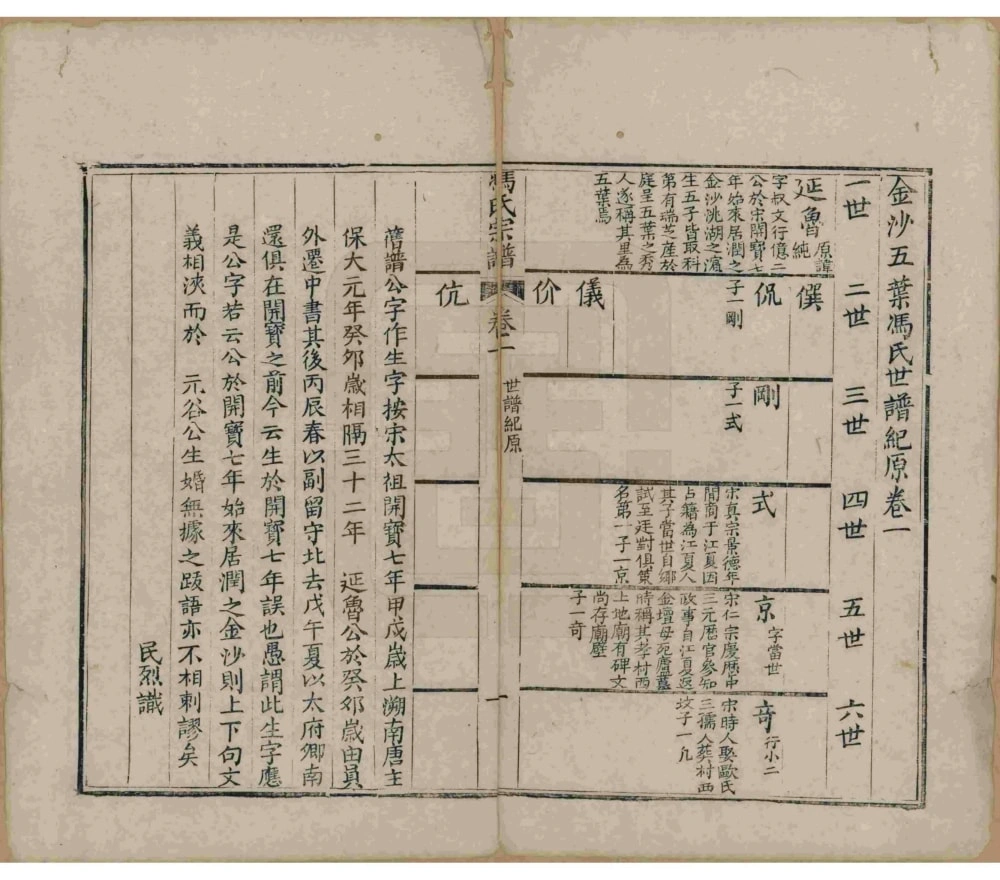 金沙五葉馮氏世譜紀原卷一
一世 二世 三世 四世 五世 六世
延魯 原諱
純
字叔文行億二
公於宋開寶七
年始來居潤之
金沙洮湖之濵
生五子皆取科
第有瑞芝産於
庭呈五葉之秀
人遂稱其里為
五葉焉
僎
侃
子一剛
儀
价
伉
剛
子一式
式
宋真宗景德年
間商于江夏因
占籍為江夏人
其子當世自鄉
試至廷對俱策
名第一子一京
京 字當世
宋仁宗慶歷中
三元歷官參知
政事自江夏返
金壇母死廬墓
時稱其孝村西
上地廟有碑文
尚存廟壁
子一奇
奇 行小二
宋時人娶歐氏
三孺人葬村西
坟子一凢
馮氏宗譜 卷一 世譜紀原 一
舊譜公字作生字按宋太祖開寶七年甲戌歲上溯南唐主
保大元年癸夘歲相隔三十二年 延魯公於癸夘歲由員
外遷中書其後丙辰春以副留守北去戊午夏以太府卿南
還俱在開寶之前今云生於開寶七年誤也愚謂此生字應
是公字若云公於開寶七年始來居潤之金沙則上下句文
義相浹而於 示谷公生婚無據之跋語亦不相刺謬矣
民烈識